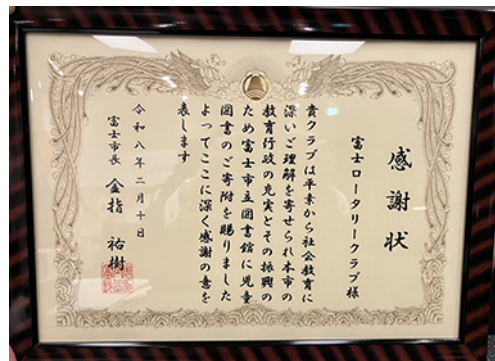 感謝状
富士ロータリークラブ様
貴クラブは平素から社会教育に
深いご理解を寄せられ本市の
教育行政の充実とその振興の
ため富士市立図書館に児童
図書のご寄附を賜りました
よってここに深く感謝の意を
表します
令和八年二月十日
富士市長 金指祐樹